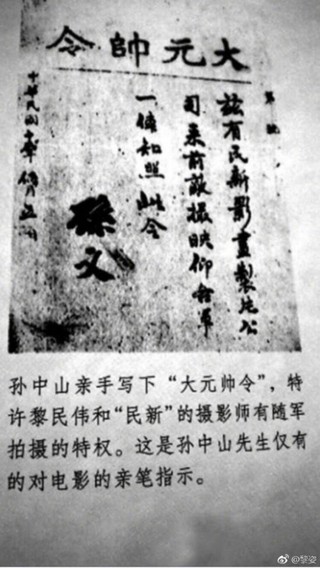 大元帥令
第 號
茲有民新影畫製造公
司來前敵攝映仰各軍
知照此令
孫文
中華民國
孙中山亲手写下“大元帅令”，特
许黎民伟和“民新”的摄影师有随军
拍摄的特权。这是孙中山先生仅有
的对电影的亲笔指示。
@黎姿